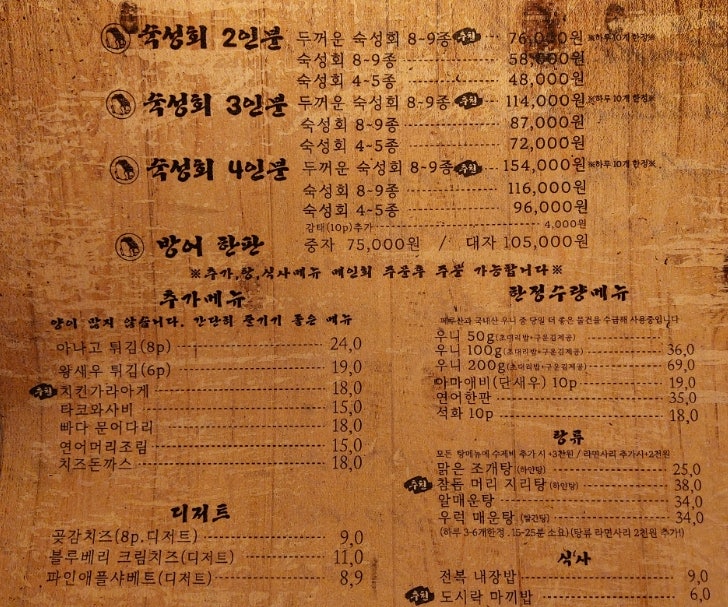 숙성회 2인분 두꺼운 숙성회 8-9종 추천 76,000원 ※하루 10개 한정※
숙성회 8-9종 58,000원
숙성회 4-5종 48,000원
숙성회 3인분 두꺼운 숙성회 8-9종 추천 114,000원 ※하루 10개 한정※
숙성회 8-9종 87,000원
숙성회 4-5종 72,000원
숙성회 4인분 두꺼운 숙성회 8-9종 추천 154,000원 ※하루 10개 한정※
숙성회 8-9종 116,000원
숙성회 4-5종 96,000원
감태(10p)추가 4,000원
방어 한판 중자 75,000원 / 대자 105,000원
※추가,탕,식사메뉴 메인회 주문후 주문 가능합니다※
추가메뉴
양이 많지 않습니다. 간단히 즐기기 좋은 메뉴
아나고 튀김(8p) 24,0
왕새우 튀김(6p) 19,0
추천 치킨가라아게 18,0
타코와사비 15,0
빠다 문어다리 18,0
연어머리조림 15,0
치즈돈까스 18,0
디저트
곶감치즈(8p.디저트) 9,0
블루베리 크림치즈(디저트) 11,0
파인애플샤베트(디저트) 8,9
한정수량메뉴
페루산과 국내산 우니 중 당일 더 좋은 물건을 수급해 사용중입니다
우니 50g(초대리밥+구운김제공)
우니 100g(초대리밥+구운김제공) 36,0
우니 200g(초대리밥+구운김제공) 69,0
아마애비(단새우) 10p 19,0
연어한판 35,0
석화 10p 18,0
탕류
모든 탕메뉴에 수제비 추가 시 +3천원 / 라면사리 추가시+2천원
맑은 조개탕(하얀탕) 25,0
추천 참돔 머리 지리탕(하얀탕) 38,0
알매운탕 34,0
우럭 매운탕 (빨간탕) 34,0
(하루 3-6개한정 . 15-25분 소요)(탕류 라면사리 2천원 추가!)
식사
전복 내장밥 9,0
추천 도시락 마끼밥 6,0